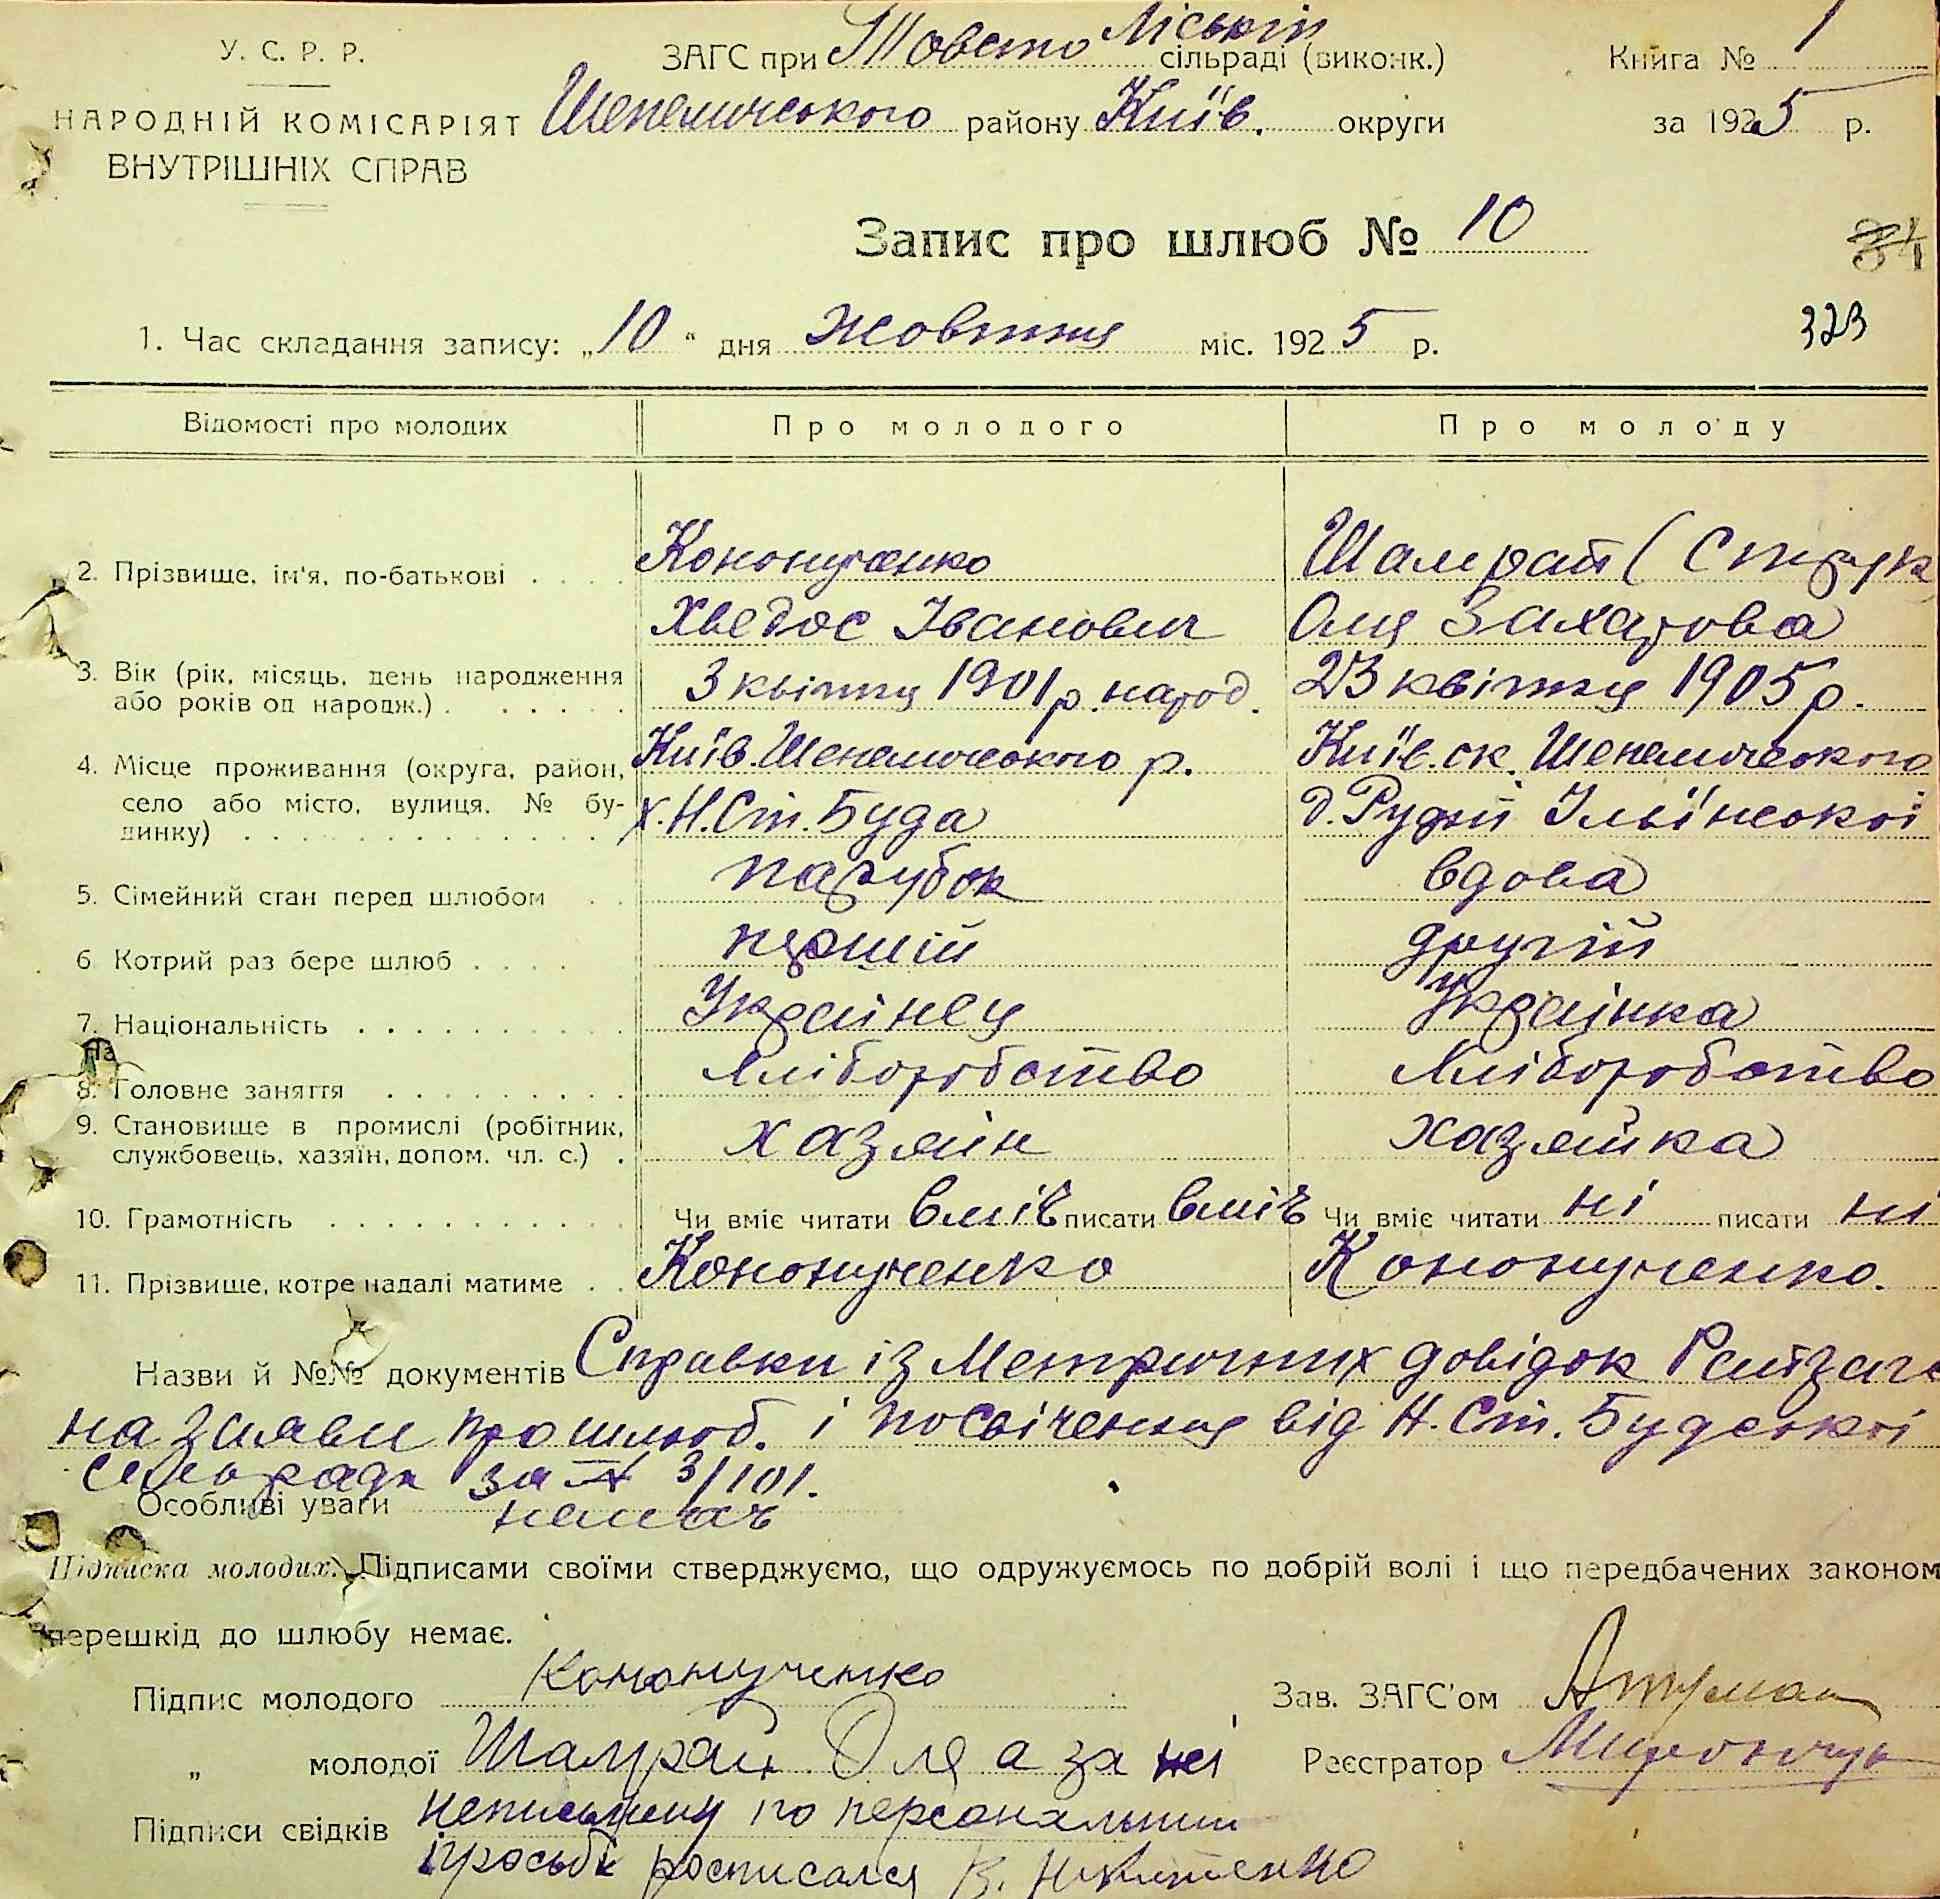 У. С. Р. Р.
НАРОДНІЙ КОМІСАРІЯТ
ВНУТРІШНІХ СПРАВ
ЗАГС при ТовстоЛіській сільраді (виконк.)
Шепелицького району Київ. округи
Книга № 1
за 1925 р.
Запис про шлюб № 10
34
323
1. Час складання запису: „10“ дня жовтня міс. 1925 р.
Відомості про молодих Про молодого Про молоду
2. Прізвище, ім'я, по-батькові . . . . Кононученко Шамрай (Струк
Хведос Іванович Оля Захарова
3. Вік (рік, місяць, день народження 3 квітня 1901 р. народ. 23 квітня 1905 р.
або років од народж.) .
4. Місце проживання (округа, район, Київ. Шепелицького р. Київ. ок. Шепелицького
село або місто, вулиця, № бу- х. Н. Ст. Буда д. Рудні Ільїнської
динку)
5. Сімейний стан перед шлюбом парубок вдова
6 Котрий раз бере шлюб . . . . перший другий
7. Національність Українец Українка
8. Головне заняття Хліборобство Хліборобство
9. Становище в промислі (робітник, хазяїн хазяйка
службовець, хазяїн, допом. чл. с.) .
10. Грамотність Чи вміє читати вміє писати вміє Чи вміє читати ні писати ні
11. Прізвище, котре надалі матиме . . Кононученко Кононученко.
Назви й №№ документів Справки із Метричних довідок Райзагс
на заяви про шлюб. і посвічення від Н. Ст. Будської
сельради за № 3/101.
Особливі уваги немає
Підписка молодих: Підписами своїми стверджуємо, що одружуємось по добрій волі і що передбачених законом
перешкід до шлюбу немає.
Підпис молодого Кононученко
Зав. ЗАГС'ом
„ молодої Шамрай Оля а за неї
Реєстратор
Підписи свідків неписьмену по персональний
просьбі росписался В. Никитенко